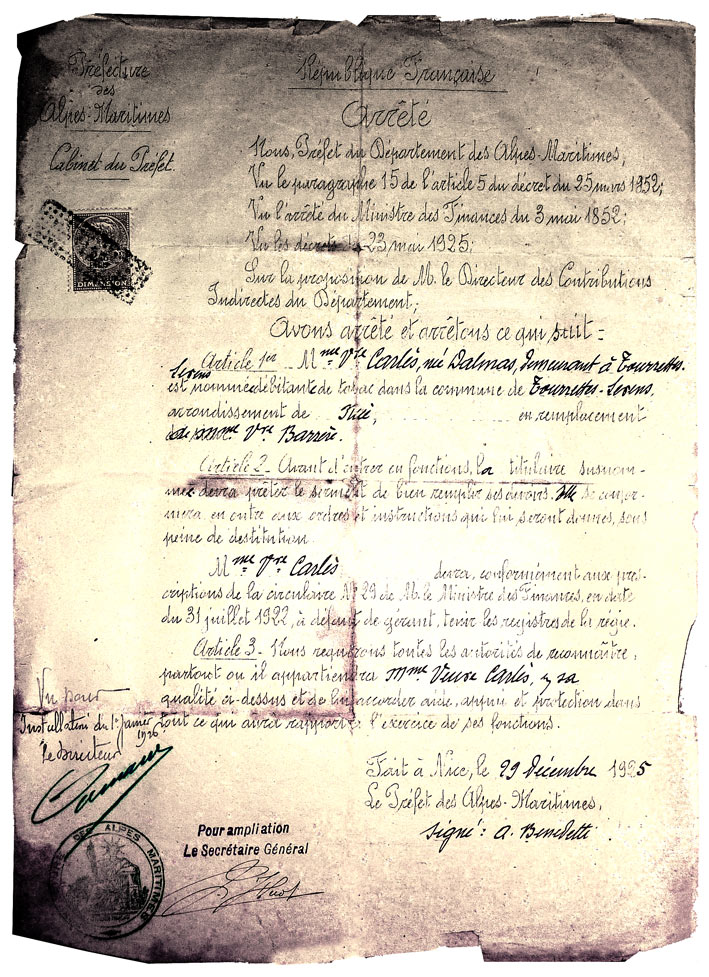 Préfecture
des
Alpes-Maritimes
Cabinet du Préfet.
DIMENSION
République Française
Arrêté
Nous, Préfet du Département des Alpes-Maritimes,
Vu le paragraphe 15 de l'article 5 du décret du 25 mars 1852;
Vu l'arrêté du Ministre des Finances du 3 mai 1852;
Vu les décrets 23 mai 1925;
Sur la proposition de M. le Directeur des Contributions
Indirectes du Département;
Avons arrêté et arrêtons ce qui suit =
Article 1er M me Vve Carlès, née Dalmas, demeurant à Tourrettes-
Levens
est nommée débitante de tabac dans la commune de Tourrettes-Levens,
arrondissement de Nice, en remplacement
de Mme Vve Barrère.
Article 2 - Avant d'entrer en fonctions, la titulaire susnom-
mée devra prêter le serment de bien remplir ses devoirs. Elle se confor-
mera en outre aux ordres et instructions qui lui seront donnés, sous
peine de destitution.
M me Vve Carlès devra, conformément aux pres-
criptions de la circulaire N° 29 de M. le Ministre des Finances, en date
du 31 juillet 1922, à défaut de gérant, tenir les registres de la régie.
Article 3 - Nous requérons toutes les autorités de reconnaître,
partout où il appartiendra Mme Veuve Carlès, sa
qualité ci-dessus et de lui accorder aide, appui et protection dans
tout ce qui aura rapport à l'exercice de ses fonctions.
Vu pour
Installation du 1er Janvier
1926
Le Directeur
Fait à Nice, le 29 Décembre 1925
Le Préfet des Alpes-Maritimes,
signé: A. Benedetti
Pour ampliation
Le Secrétaire Général
DES ALPES MARITIMES